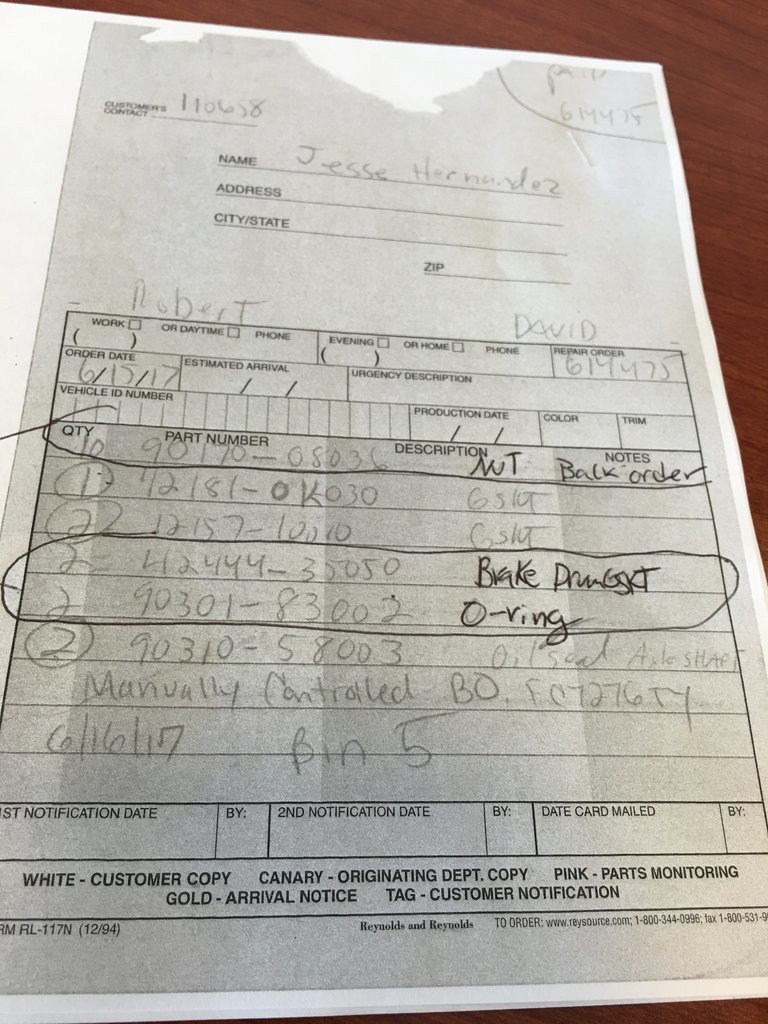 PAID
614475
CUSTOMER'S CONTACT 110658
NAME Jesse Hernandez
ADDRESS
CITY/STATE
ZIP
Robert DAVID
WORK OR DAYTIME PHONE EVENING OR HOME PHONE REPAIR ORDER
( ) ( ) 614475
ORDER DATE ESTIMATED ARRIVAL URGENCY DESCRIPTION
6/15/17 / /
VEHICLE ID NUMBER PRODUCTION DATE COLOR TRIM
/ /
QTY PART NUMBER DESCRIPTION NOTES
10 90170-08036 NUT Back order
1 42181-0K030 GSKT
2 12157-10010 GSKT
2 412444-35050 Brake Drum GSKT
2 90301-83002 O-ring
2 90310-58003 Oil seal Axle SHAFT
Manually Controlled BO.
6/16/17 Bin 5
1ST NOTIFICATION DATE BY: 2ND NOTIFICATION DATE BY: DATE CARD MAILED BY:
WHITE - CUSTOMER COPY CANARY - ORIGINATING DEPT. COPY PINK - PARTS MONITORING
GOLD - ARRIVAL NOTICE TAG - CUSTOMER NOTIFICATION
RM RL-117N (12/94) Reynolds and Reynolds TO ORDER: www.reysource.com; 1-800-344-0996; fax 1-800-531-9